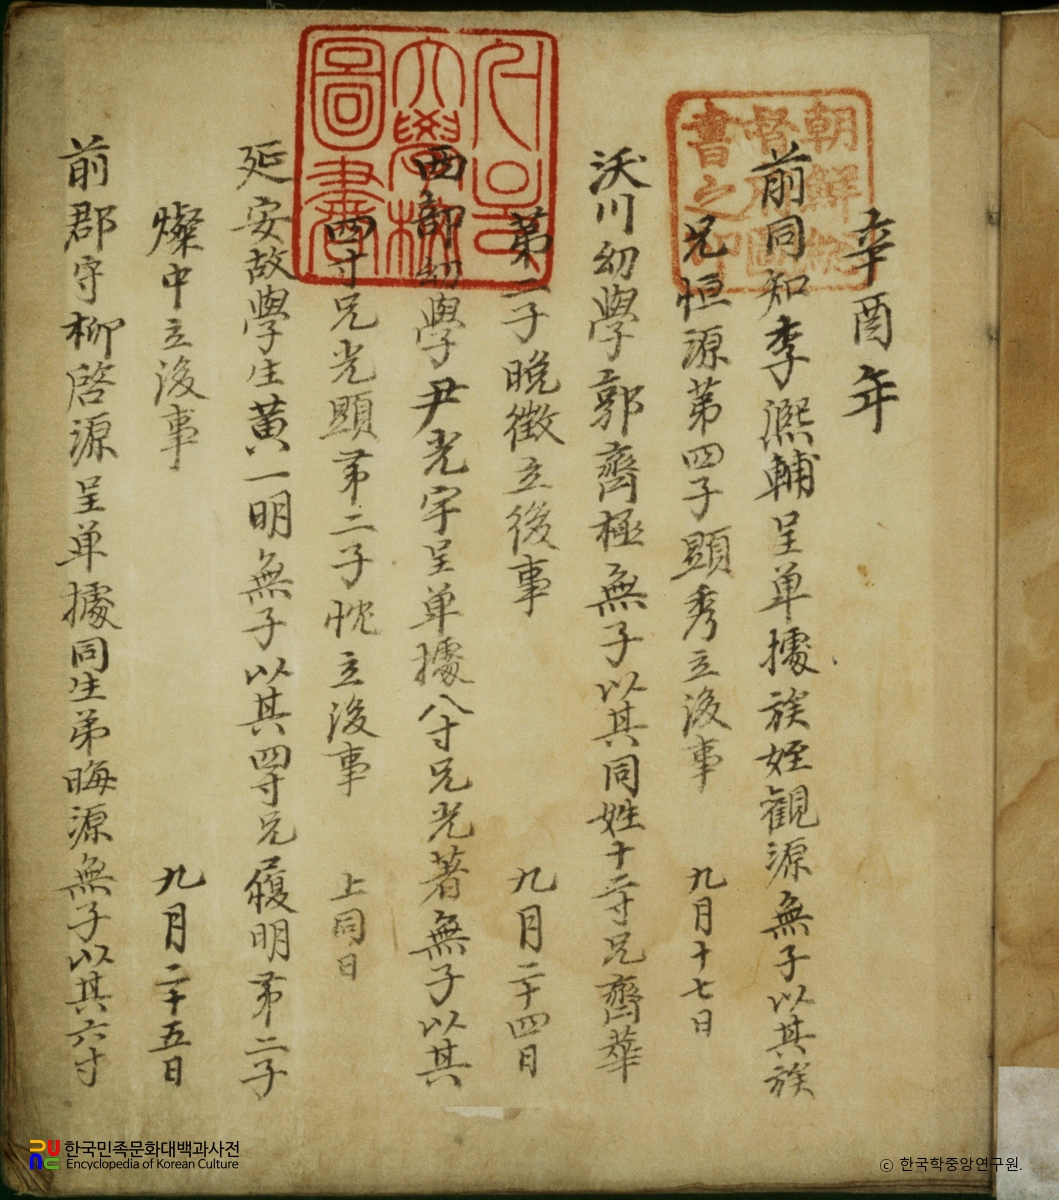 辛酉年
前同知李㷩輔呈单據族姪観源無子以其族
兄恒源第四子顕秀立後事 九月十七日
沃川幼學郭齊極無子以其同姓十二寸兄齊華
第二子晩徵立後事 九月二十四日
西部幼學尹光宇呈単據八寸兄光著無子以其
四寸兄光顕第二子忱立後事 上同日
延安故學生黄一明無子以其四寸兄履明第二子
燦中立後事 九月二十五日
前郡守柳啓源呈单據同生弟晦源無子以其六寸
朝鮮総
督府圖
書之印
大學校
圖書
한국민족문화대백과사전
Encyclopedia of Korean Culture
ⓒ 한국학중앙연구원.